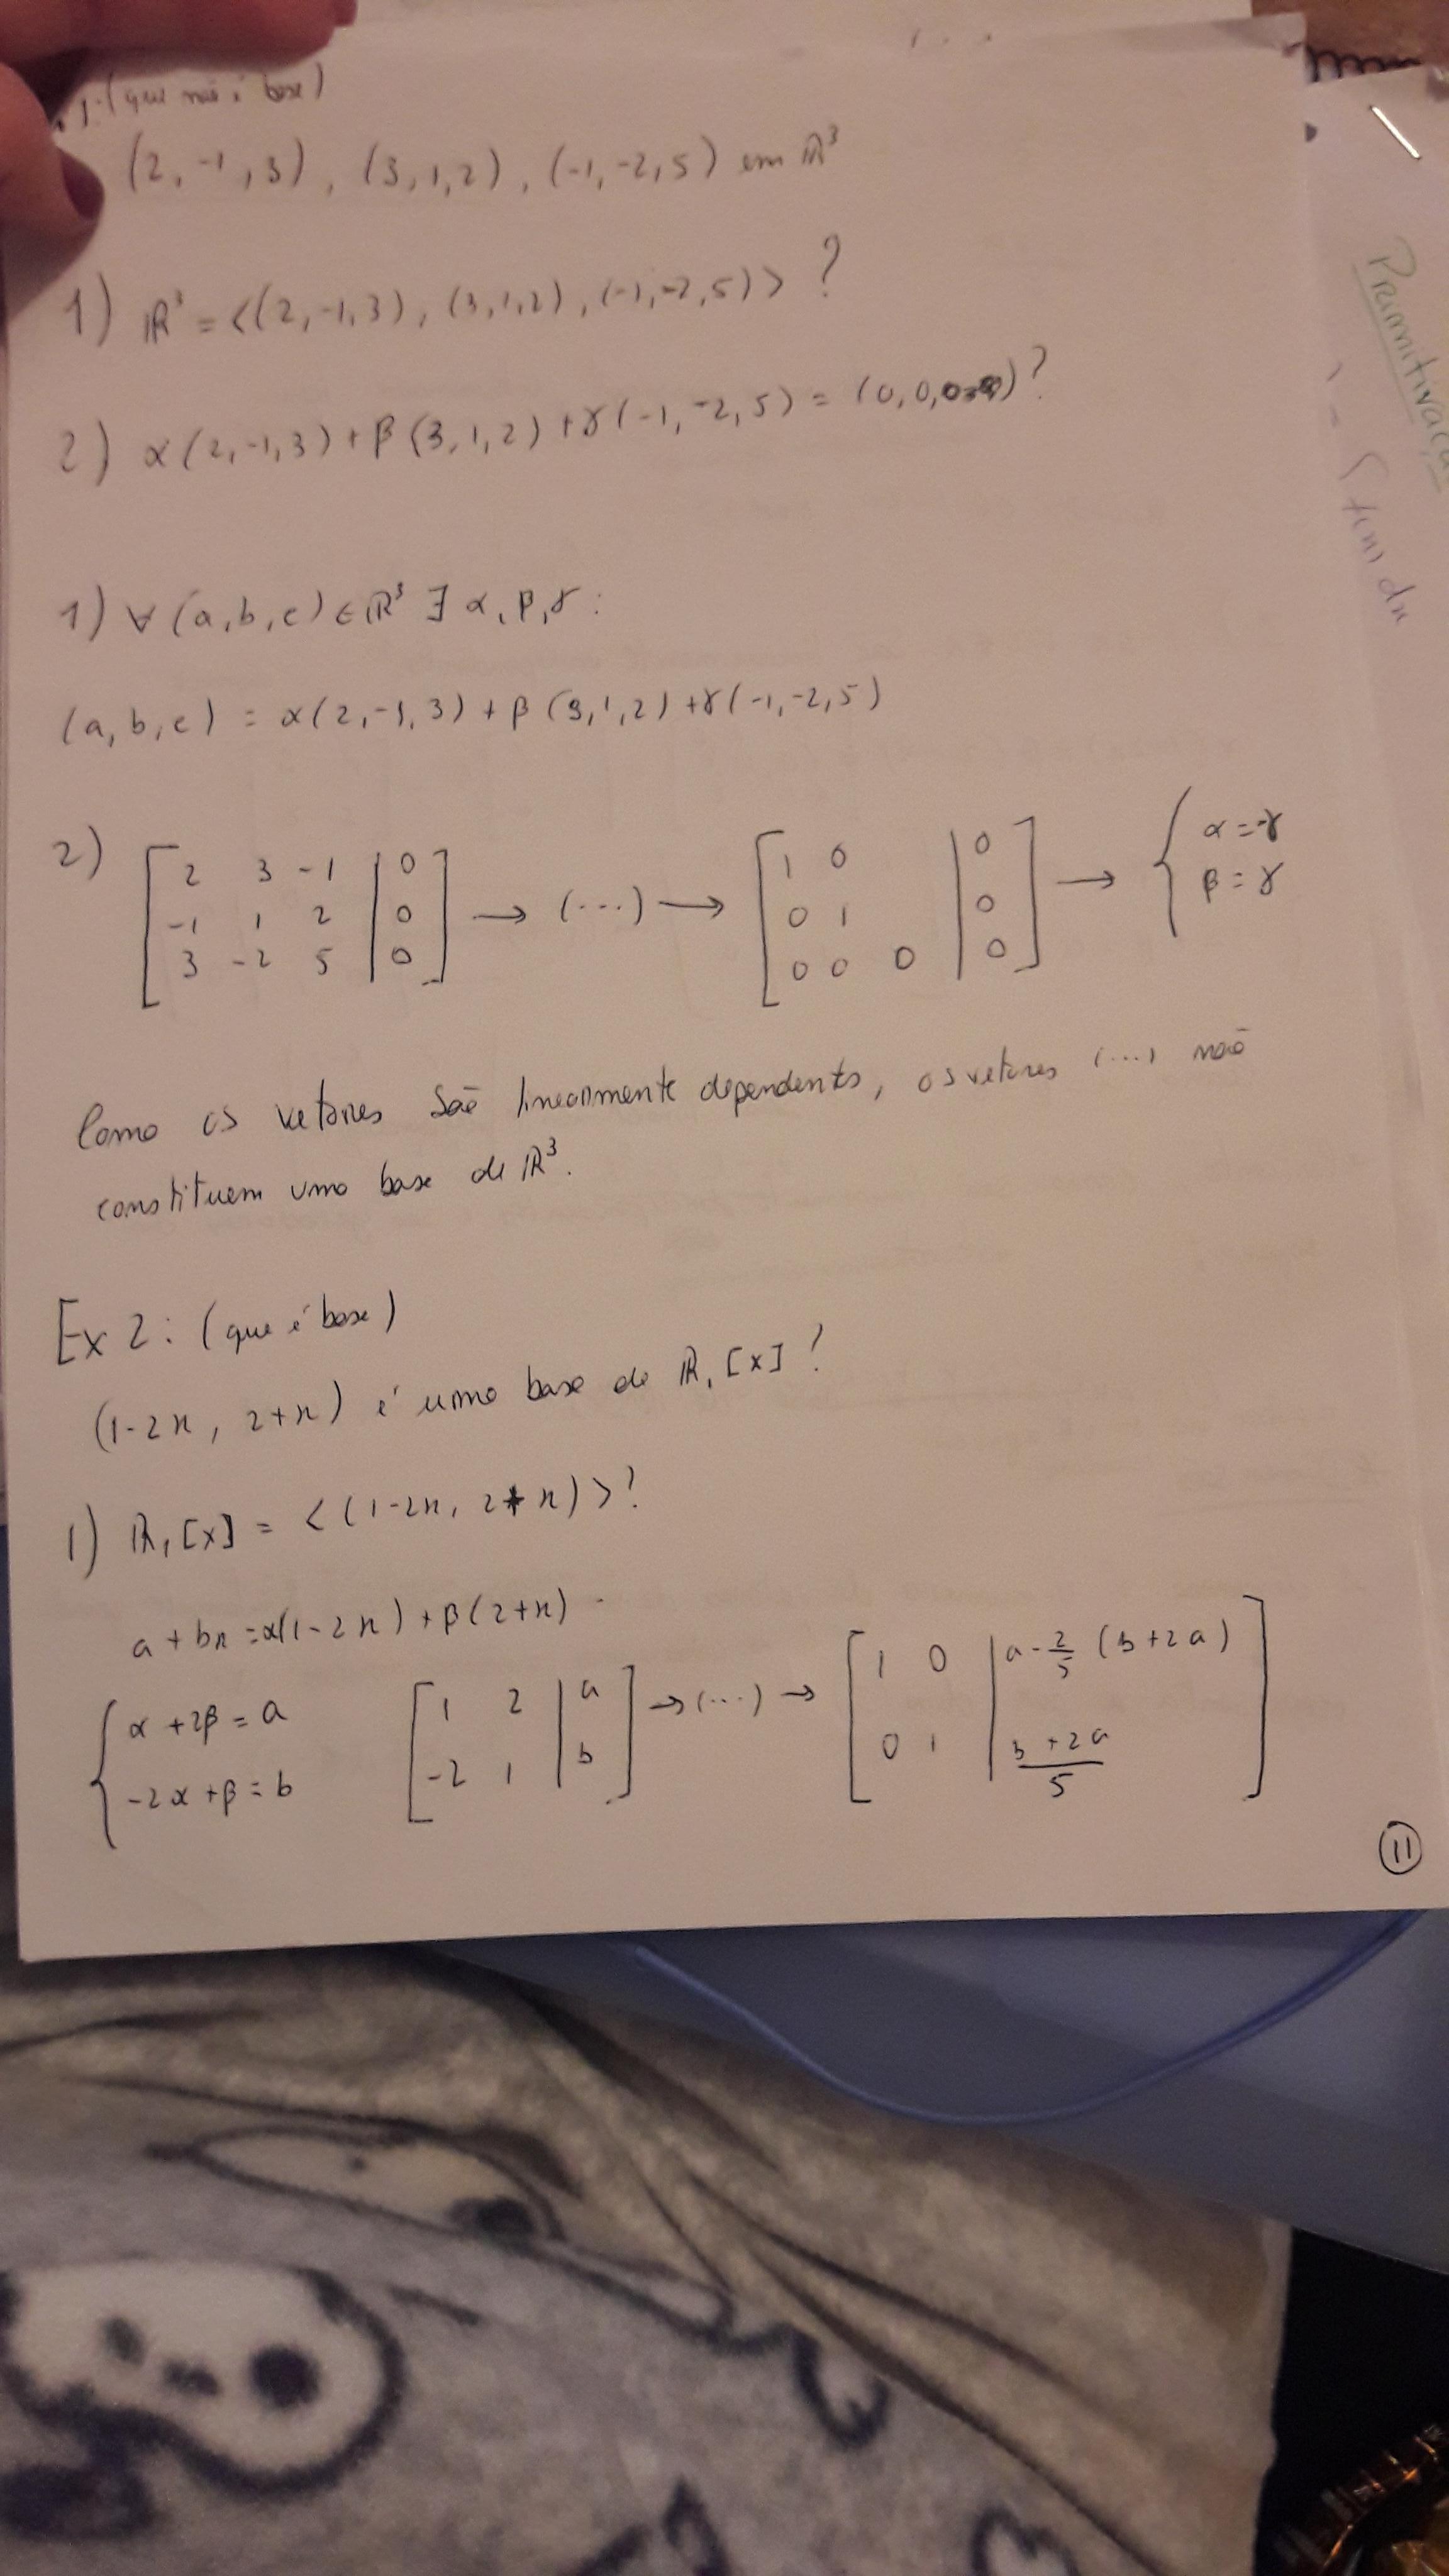 1: (que não é base)
(2, -1, 3), (3, 1, 2), (-1, -2, 5) em ℝ³
1) ℝ³ = <(2, -1, 3), (3, 1, 2), (-1, -2, 5)> ?
2) α(2, -1, 3) + β(3, 1, 2) + γ(-1, -2, 5) = (0, 0, 0) ?
1) ∀ (a, b, c) ∈ ℝ³ ∃ α, β, γ :
(a, b, c) = α(2, -1, 3) + β(3, 1, 2) + γ(-1, -2, 5)
2) [2 3 -1 | 0] → (...) → [1 0 | 0] → { α = -γ
[-1 1 2 | 0] [0 1 | 0] β = γ
[3 -2 5 | 0] [0 0 0 | 0]
Como os vetores são linearmente dependentes, os vetores (...) não
constituem uma base de ℝ³.
Ex 2: (que é base)
(1-2x, 2+x) é uma base de ℝ₁[x] ?
1) ℝ₁[x] = <(1-2x, 2+x)> ?
a + bx = α(1-2x) + β(2+x)
{ α + 2β = a [1 2 | a] → (...) → [1 0 | a - 2/5 (b+2a)]
-2α + β = b [-2 1 | b] [0 1 | (b+2a)/5]
11
Primitivaç
f(x) dx